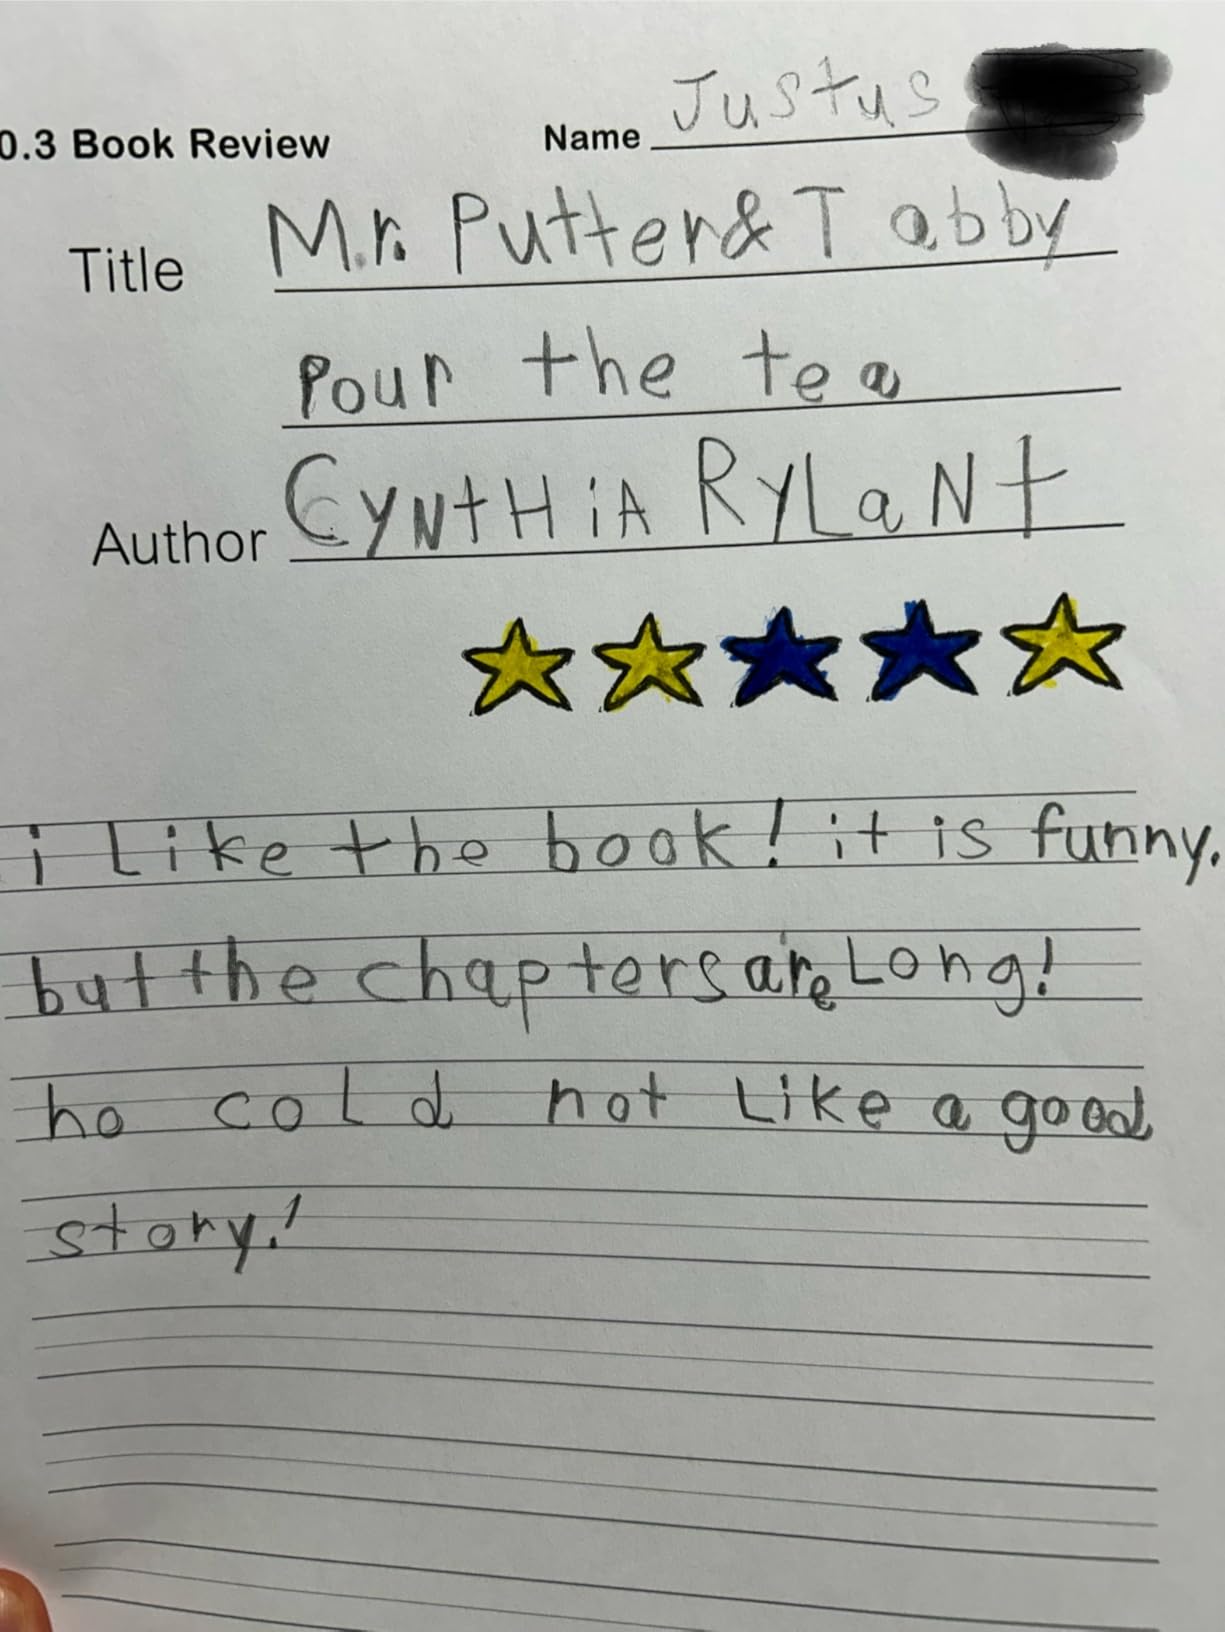 0.3 Book Review Name Justus
Title Mr. Putter & Tabby
Pour the tea
Author CYNtHiA RYLaNt
i Like the book! it is funny.
but the chapters are Long!
ho coLd not Like a good
story!